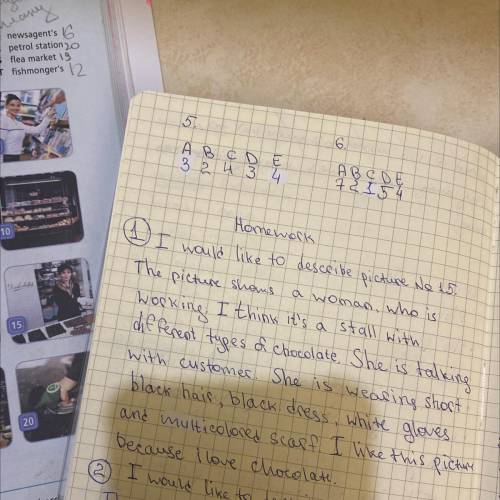 newsagent's 16
petrol station 20
flea market 19
fishmonger's 12
10
15
20
5.
A B C D E
3 2 4 3 4
6.
A B C D E
7 2 1 5 4
Homework
1 I would like to describe picture No 15.
The picture shows a woman. who is
working. I think it's a stall with
different types of chocolate. She is talking
with customer. She is wearing short
black hair, black dress, white gloves
and multicolored scarf. I like this picture
because I love chocolate.
2 I would like to